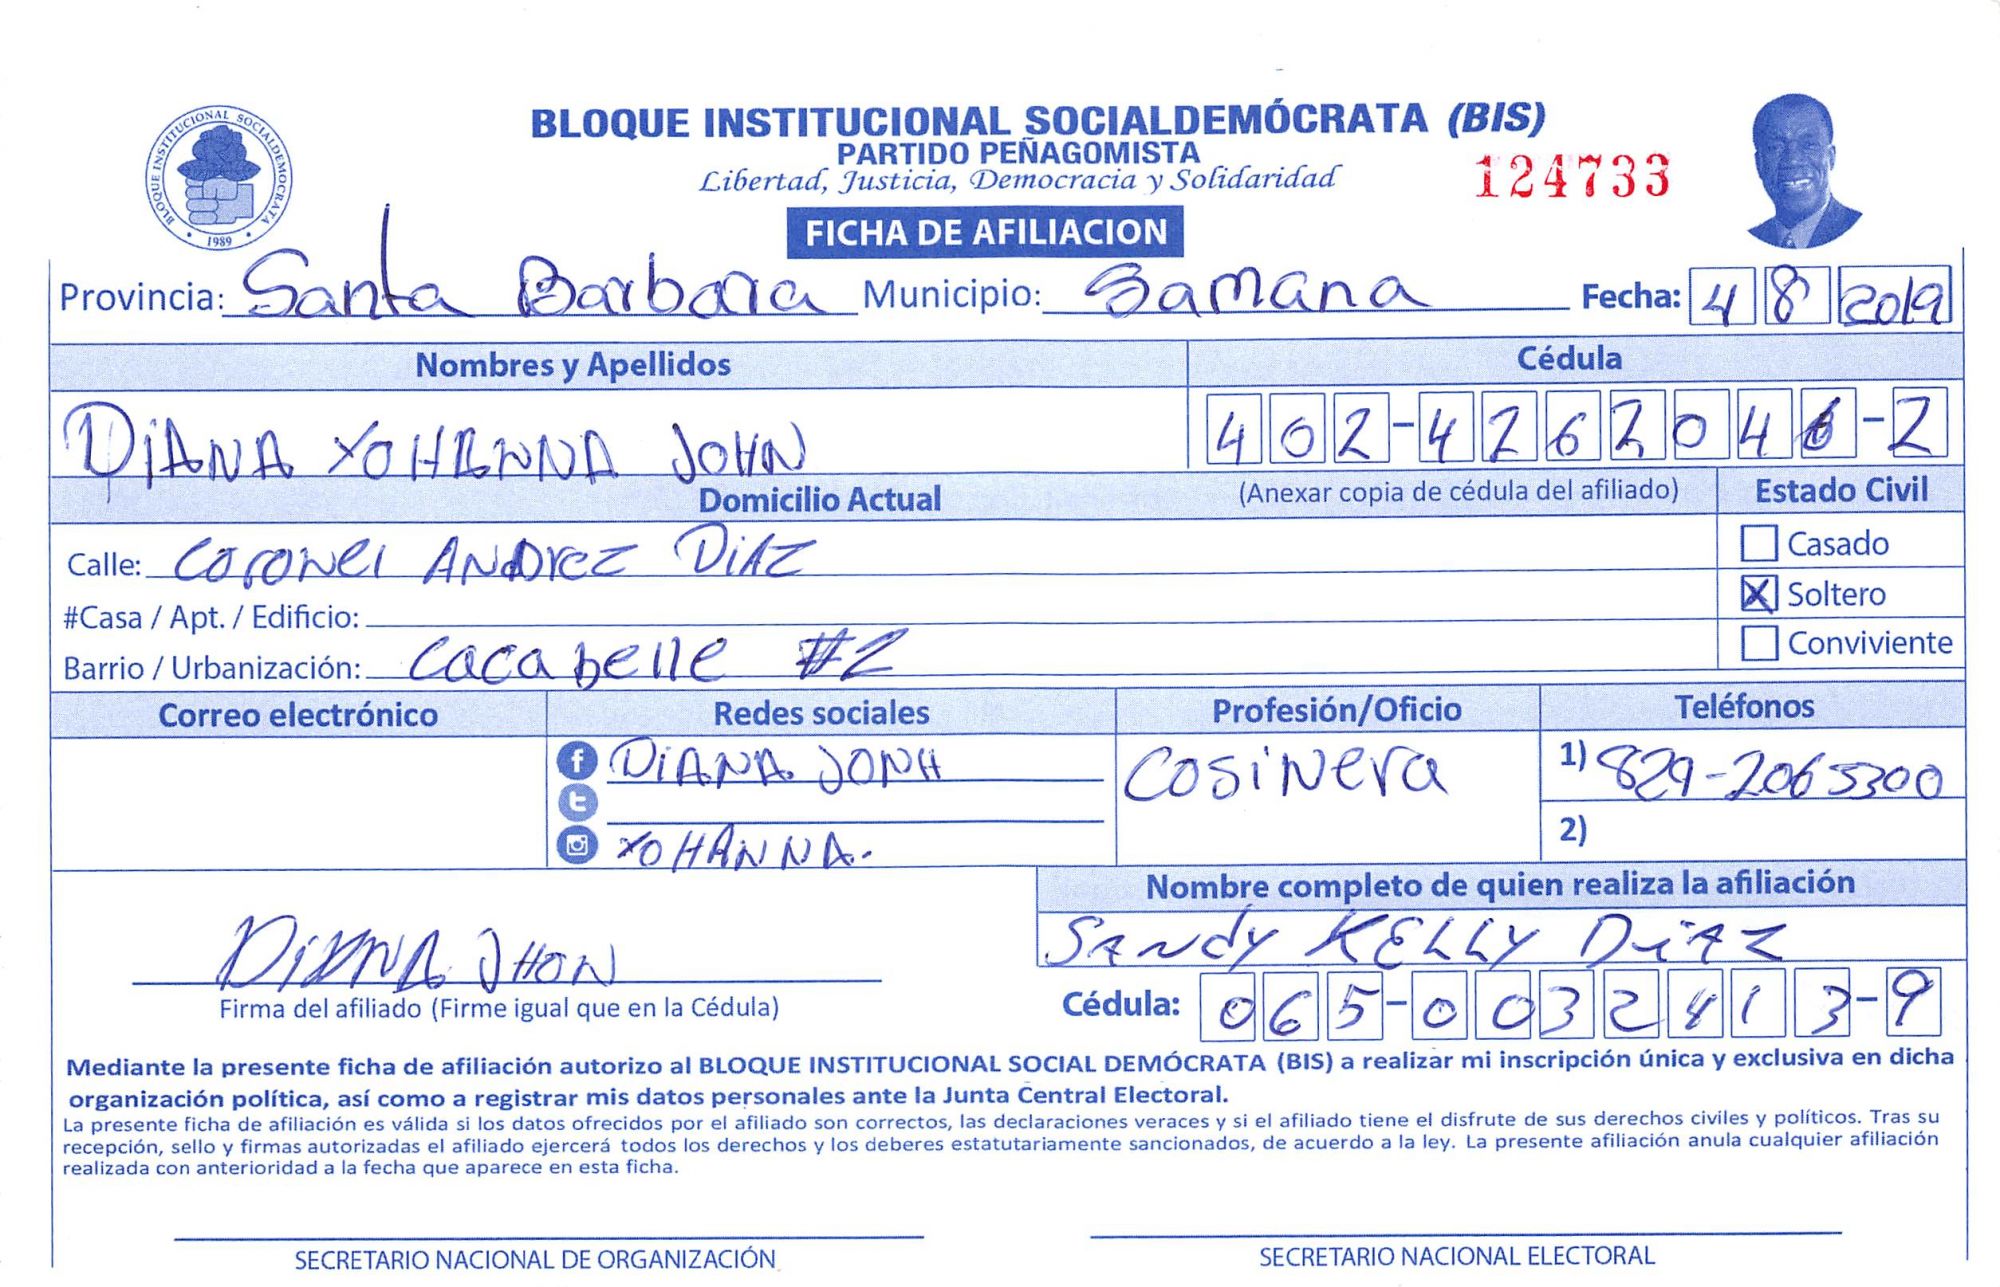 BLOQUE INSTITUCIONAL SOCIALDEMÓCRATA 1989
BLOQUE INSTITUCIONAL SOCIALDEMÓCRATA (BIS)
PARTIDO PEÑAGOMISTA
Libertad, Justicia, Democracia y Solidaridad
124733
FICHA DE AFILIACION
Provincia: Santa Barbara Municipio: Samana Fecha: 4 8 2019
Nombres y Apellidos Cédula
DiANA YOHANNA JOHN 402-4262046-2
Domicilio Actual (Anexar copia de cédula del afiliado) Estado Civil
Calle: Coronel ANDrez DiAZ
Casado
X Soltero
#Casa / Apt. / Edificio:
Barrio / Urbanización: Cacabelle #2
Conviviente
Correo electrónico Redes sociales Profesión/Oficio Teléfonos
DiANA JONH Cosinera 1) 829-2065300
2)
YOHANNA.
Nombre completo de quien realiza la afiliación
SANdy KELLY DiAZ
DiANA JHON
Firma del afiliado (Firme igual que en la Cédula)
Cédula: 065-0032413-9
Mediante la presente ficha de afiliación autorizo al BLOQUE INSTITUCIONAL SOCIAL DEMÓCRATA (BIS) a realizar mi inscripción única y exclusiva en dicha
organización política, así como a registrar mis datos personales ante la Junta Central Electoral.
La presente ficha de afiliación es válida si los datos ofrecidos por el afiliado son correctos, las declaraciones veraces y si el afiliado tiene el disfrute de sus derechos civiles y políticos. Tras su
recepción, sello y firmas autorizadas el afiliado ejercerá todos los derechos y los deberes estatutariamente sancionados, de acuerdo a la ley. La presente afiliación anula cualquier afiliación
realizada con anterioridad a la fecha que aparece en esta ficha.
SECRETARIO NACIONAL DE ORGANIZACIÓN SECRETARIO NACIONAL ELECTORAL